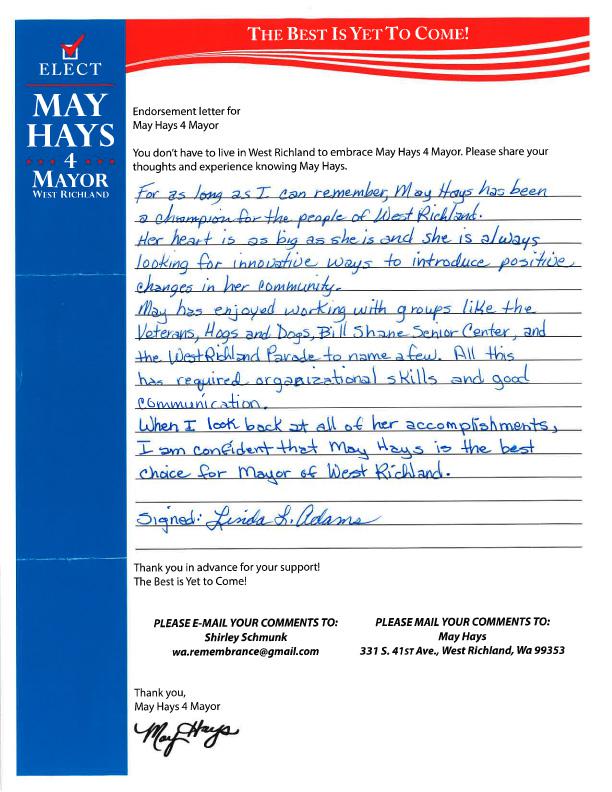 THE BEST IS YET TO COME!
ELECT
MAY
HAYS
4
MAYOR
WEST RICHLAND
Endorsement letter for
May Hays 4 Mayor
You don't have to live in West Richland to embrace May Hays 4 Mayor. Please share your
thoughts and experience knowing May Hays.
For as long as I can remember, May Hays has been
a champion for the people of West Richland.
Her heart is as big as she is and she is always
looking for innovative ways to introduce positive
changes in her community.
May has enjoyed working with groups like the
Veterans, Hogs and Dogs, Bill Shane Senior Center, and
the West Richland Parade to name a few. All this
has required organizational skills and good
communication.
When I look back at all of her accomplishments,
I am confident that May Hays is the best
choice for Mayor of West Richland.
Signed: Linda L. Adams
Thank you in advance for your support!
The Best is Yet to Come!
PLEASE E-MAIL YOUR COMMENTS TO:
Shirley Schmunk
wa.remembrance@gmail.com
PLEASE MAIL YOUR COMMENTS TO:
May Hays
331 S. 41ST Ave., West Richland, Wa 99353
Thank you,
May Hays 4 Mayor
May Hays